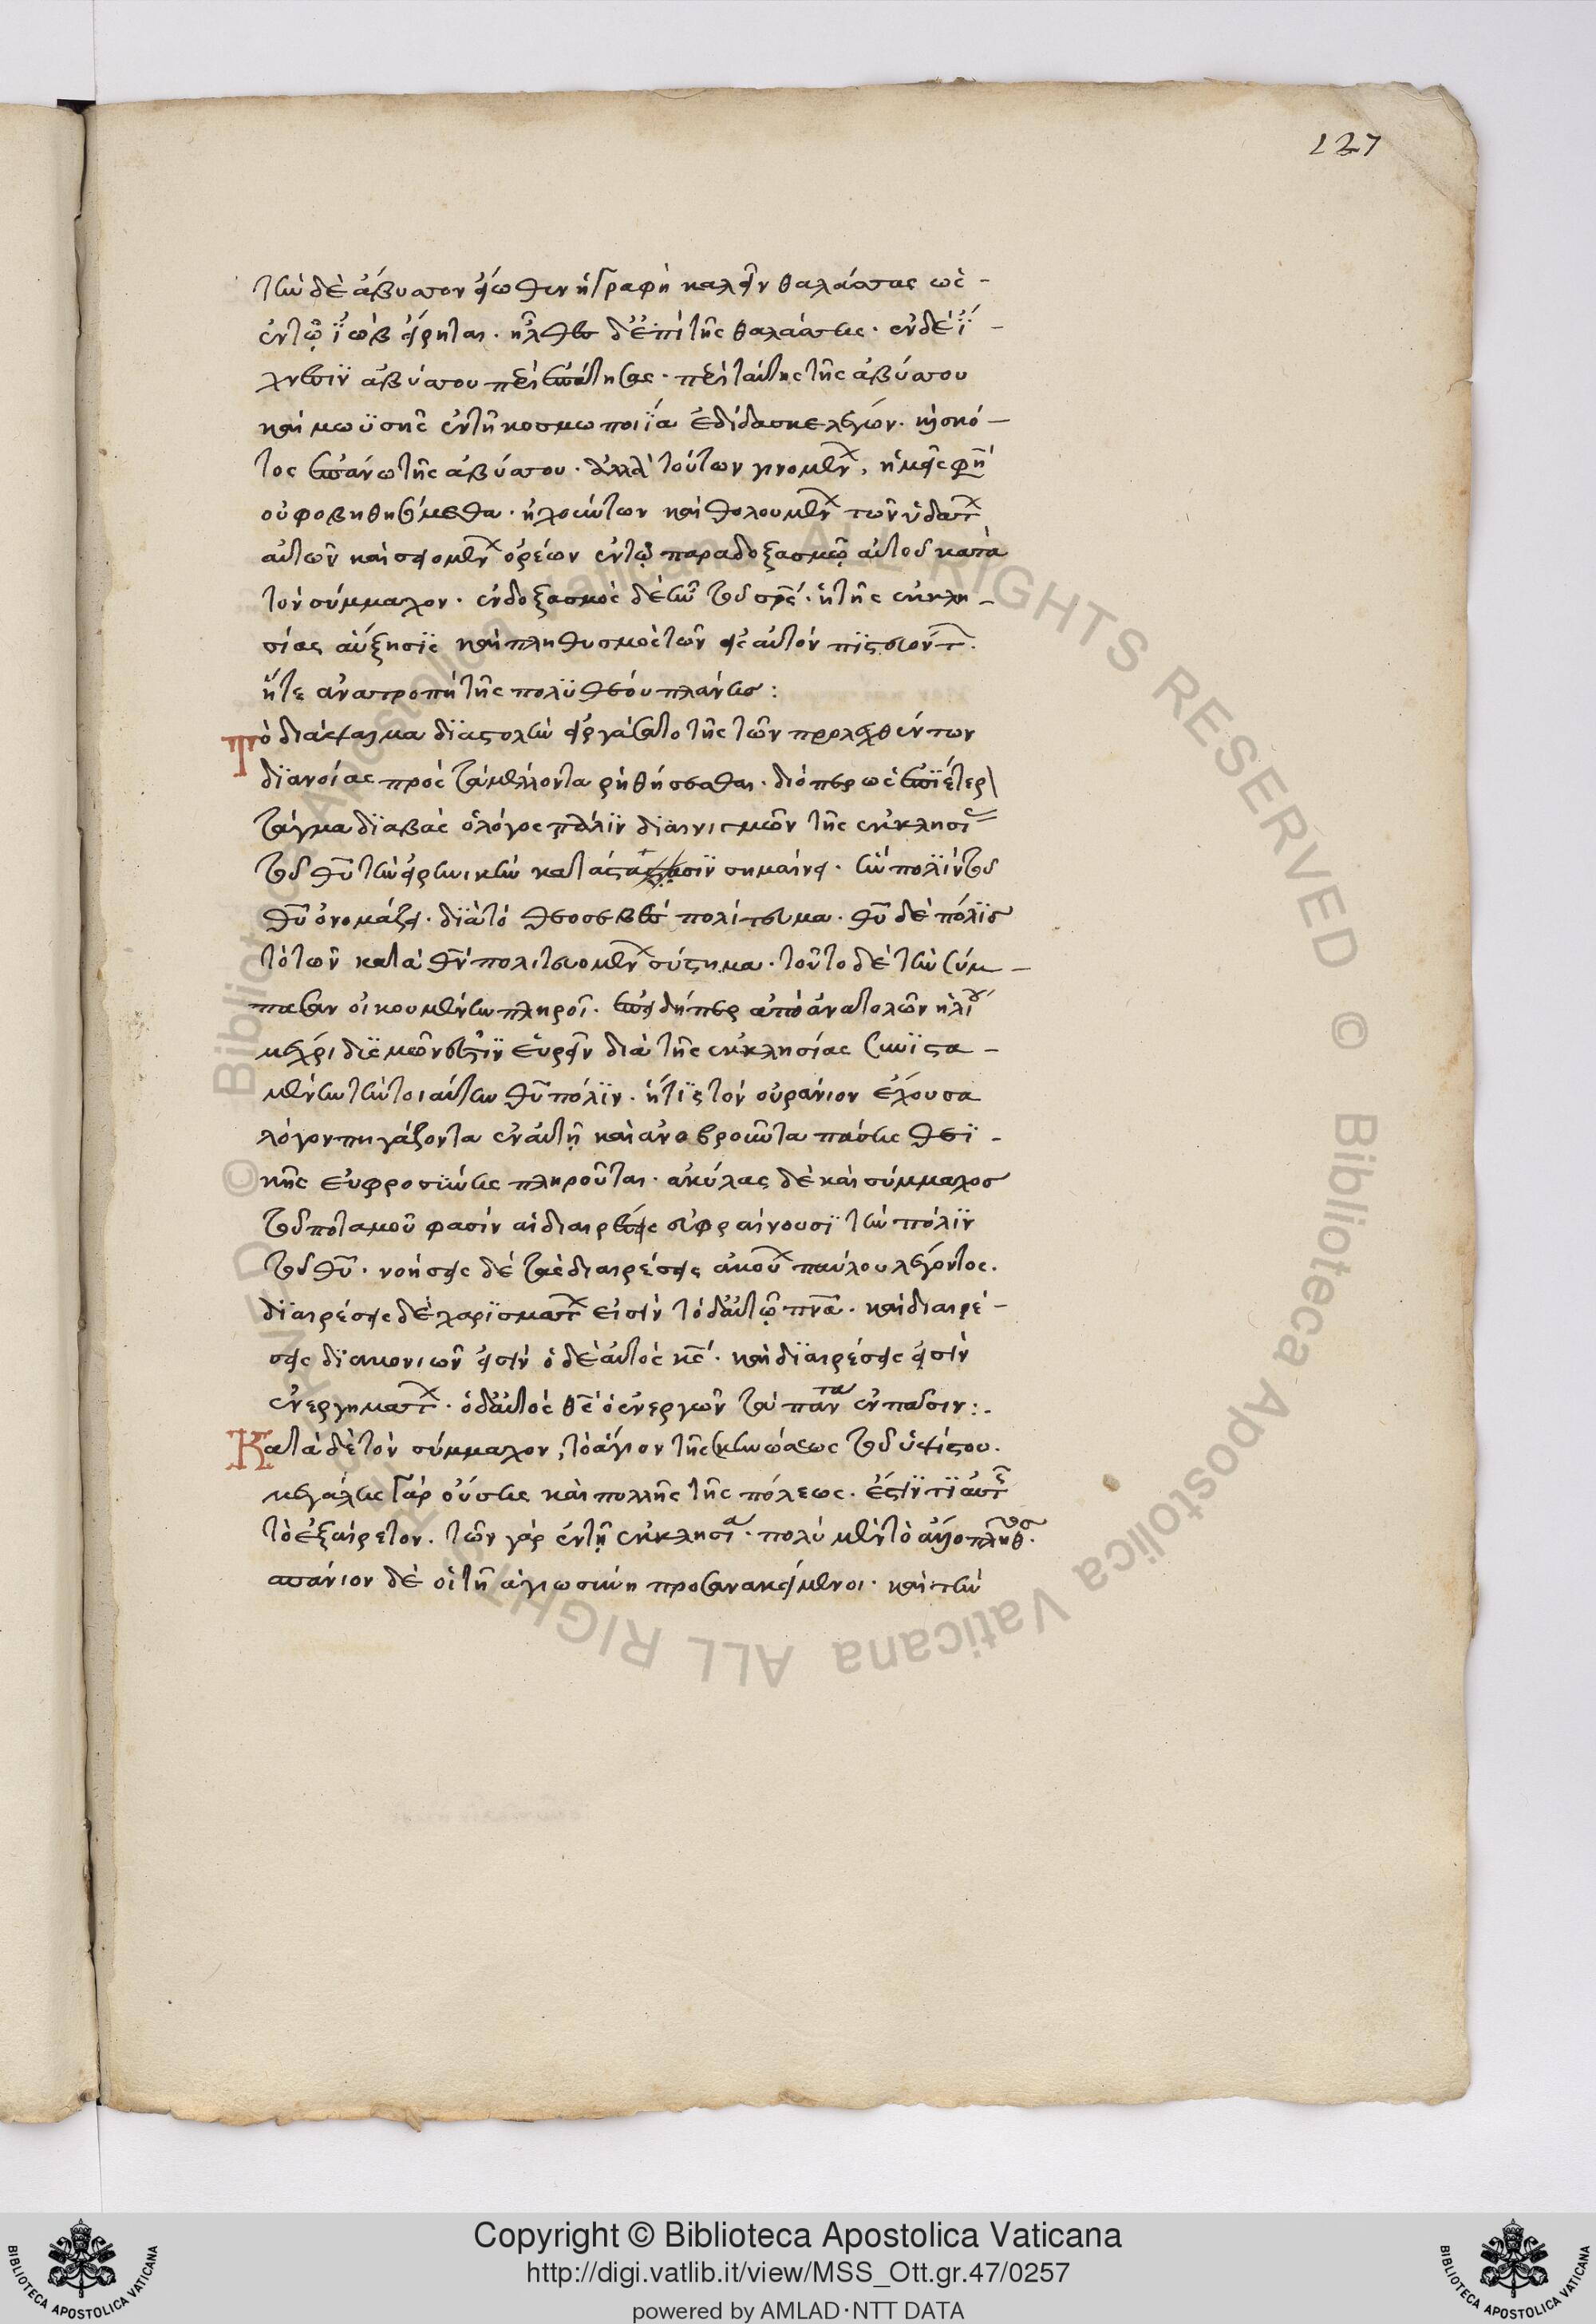 127
τὴν δὲ ἄβυσσον εἴωθεν ἡ γραφὴ καλεῖν θαλάσσας ὡς -
ἐν τῷ ἰὼβ εἴρηται· ἦλθες δ' ἐπὶ τῆς θαλάσσης· ἐν δὲ ἴ -
χνεσιν ἀβύσσου περιεπάτησας· περὶ ταύτης τῆς ἀβύσσου
καὶ μωϋσῆς ἐν τῇ κοσμωποιΐα ἐδίδασκε λέγων· καὶ σκό -
τος ἐπάνω τῆς ἀβύσσου· ἀλλὰ τούτων γινομένων, ἡμεῖς φησὶ
οὐ φοβηθησόμεθα· ἠχούντων καὶ θολουμένων τῶν ὑδάτων
αὐτῶν καὶ σειομένων ὀρέων ἐν τῷ παραδοξασμῷ αὐτοῦ κατὰ
τὸν σύμμαχον· ἐνδοξασμὸς δὲ ἦν τοῦ σρς· ἡ τῆς ἐκκλη -
σίας αὔξησις καὶ πληθυσμὸς τῶν εἰς αὐτὸν πιστευόντων.
ἥτε ἀνατροπὴ τῆς πολυθέου πλάνης:
Τὸ διάψαλμα διαστολὴν εἰργάσατο τῆς τῶν προλεχθέντων
διανοίας πρὸς τὰ μέλλοντα ῥηθήσεσθαι· διόπερ ὡς ἐπὶ ἕτερον
τάγμα διαβὰς ὁ λόγος πάλιν διαινισμῶν τῆς ἐκκλησίας
τοῦ θυ τὴν εἰρηνικὴν κατάστασιν σημαίνει· ἣν πόλιν τοῦ
θυ ὀνομάζει· διὰ τὸ θεοσεβὲς πολίτευμα· θυ δὲ πόλις
τὸ τῶν κατὰ θν πολιτευομένων σύστημα· τοῦτο δὲ τὴν σύμ -
πασαν οἰκουμένην πληροῖ· ἐπειδήπερ ἀπὸ ἀνατολῶν ἡλίου
μέχρι δυσμῶν ἔστιν εὑρεῖν διὰ τῆς ἐκκλησίας συνιστα -
μένην τὴν τοιαύτην θυ πόλιν· ἥτις τὸν οὐράνιον ἔχουσα
λόγον πηγάζοντα ἐν αὐτῇ καὶ ἀνομβροῦντα πάσης θεϊ -
κῆς εὐφροσύνης πληροῦται· ἀκύλας δὲ καὶ σύμμαχος
τοῦ ποταμοῦ φασὶν αἱ διαιρέσεις εὐφραίνουσι τὴν πόλιν
τοῦ θυ· νοήσεις δὲ τὰς διαιρέσεις ἀκούων παύλου λέγοντος.
διαιρέσεις δὲ χαρισμάτων εἰσὶν τὸ δ' αὐτῷ πνα· καὶ διαιρέ -
σεις διακονιῶν εἰσὶν ὁ δὲ αὐτὸς κς· καὶ διαιρέσεις εἰσὶν
ἐνεργημάτων· ὁ δ' αὐτὸς θς ὁ ἐνεργῶν τὰ πάντα ἐν πᾶσιν:.
Κατὰ δὲ τὸν σύμμαχον, τὸ ἅγιον τῆς σκηνώσεως τοῦ ὑψίστου.
μεγάλης γὰρ οὔσης καὶ πολλῆς τῆς πόλεως· ἐστίν τι αὐτῆς
τὸ ἐξαίρετον· τῶν γὰρ ἐν τῇ ἐκκλησία· πολὺ μὲν τὸ ἄλλο πλῆθος·
σπάνιον δὲ οἱ τῇ ἁγιωσύνη προσανακείμενοι· καὶ τὴν
Copyright © Biblioteca Apostolica Vaticana
http://digi.vatlib.it/view/MSS_Ott.gr.47/0257
powered by AMLAD·NTT DATA